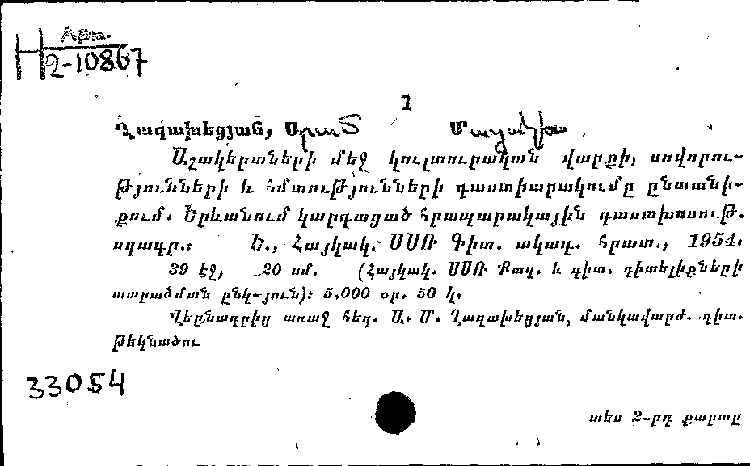 Հ 2-10867
1
Ղազախեցյան, Արամ
Աշակերտների մեջ կուլտուրական վարքի, սովորու-
թյունների և հմտությունների դաստիարակումը ընտանի-
քում. Երևանում կարդացած հրապարակային դասախոսութ.
սղագր.: Ե., Հայկակ. ՍՍՌ Գիտ. ակադ. հրատ., 1954.
39 էջ, 20 սմ. (Հայկակ. ՍՍՌ Քաղ. և գիտ. գիտելիքների
տարածման ընկ-յուն): 5.000 օր. 50 կ.
Վերնագրից առաջ հեղ. Ա. Մ. Ղազախեցյան, մանկավարժ. գիտ.
թեկնածու
33054
տես 2-րդ քարտը